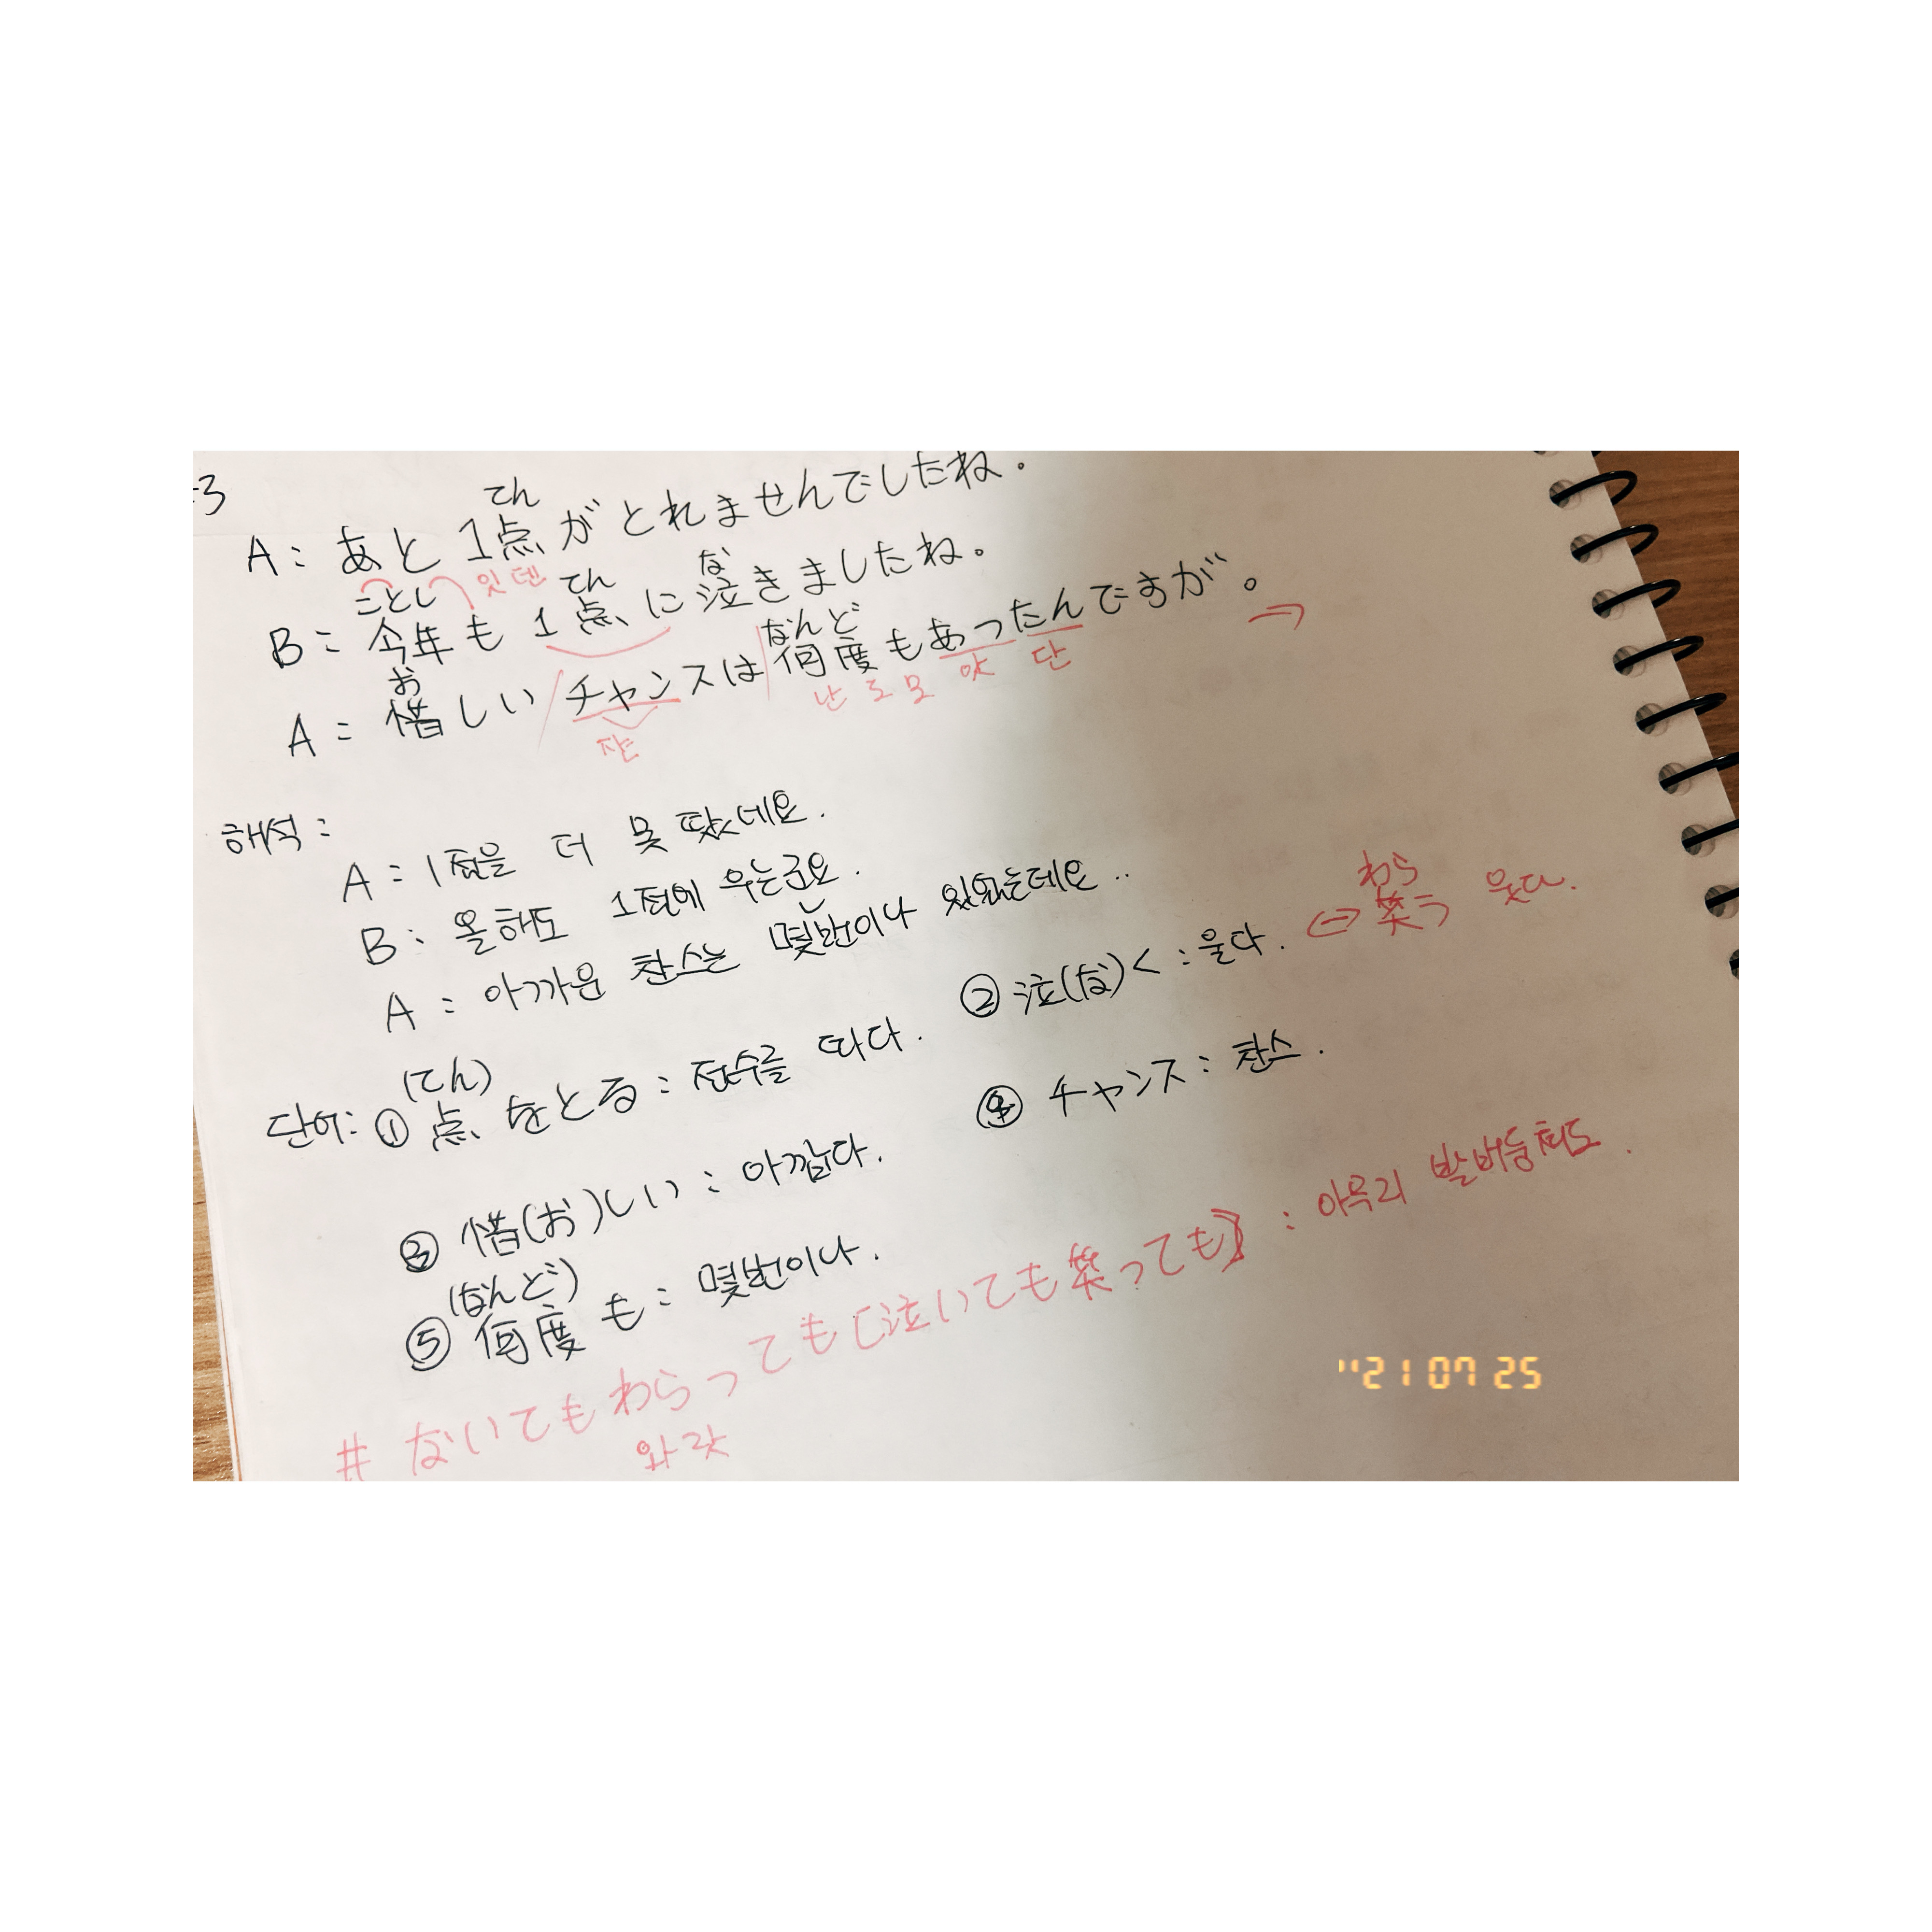 3
てん
A: あと 1点が とれませんでしたね。
잇덴
ことし てん な
B: 今年も 1点に 泣きましたね。
お なんど
A: 惜しい チャンスは 何度もあったんですが。
쟌 난도모 앗 단
해석:
A: 1점을 더 못 땄네요.
B: 올해도 1점에 우는군요.
A: 아까운 찬스는 몇번이나 있었는데요..
(てん)
단어: ① 点をとる: 점수를 따다. ② 泣(な)く: 울다. ↔ 笑う 웃다.
わら
③ 惜(お)しい: 아깝다. ④ チャンス: 찬스.
(なんど)
⑤ 何度も: 몇번이나.
# ないてもわらっても [泣いても笑っても]: 아무리 발버둥쳐도.
와랏
'21 07 25